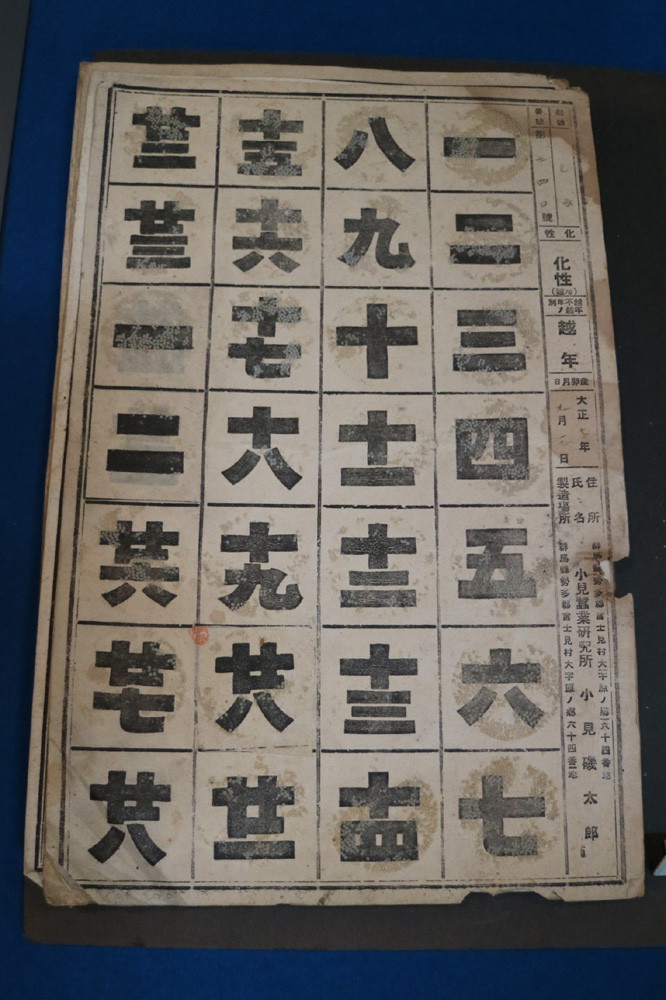 番號 第 號
化性
化性
越年不越年ノ別
越年
産卵月日
大正 年
月 日
住所
氏名
製造場所
群馬縣勢多郡富士見村大字原ノ郷六十四番地
小見蠶業研究所 小見磯太郎
群馬縣勢多郡富士見村大字原ノ郷六十四番地
一
二
三
四
五
六
七
八
九
十
十一
十二
十三
十四
十五
十六
十七
十八
十九
廿八
廿一
廿二
廿三
一
二
廿六
廿七
廿八